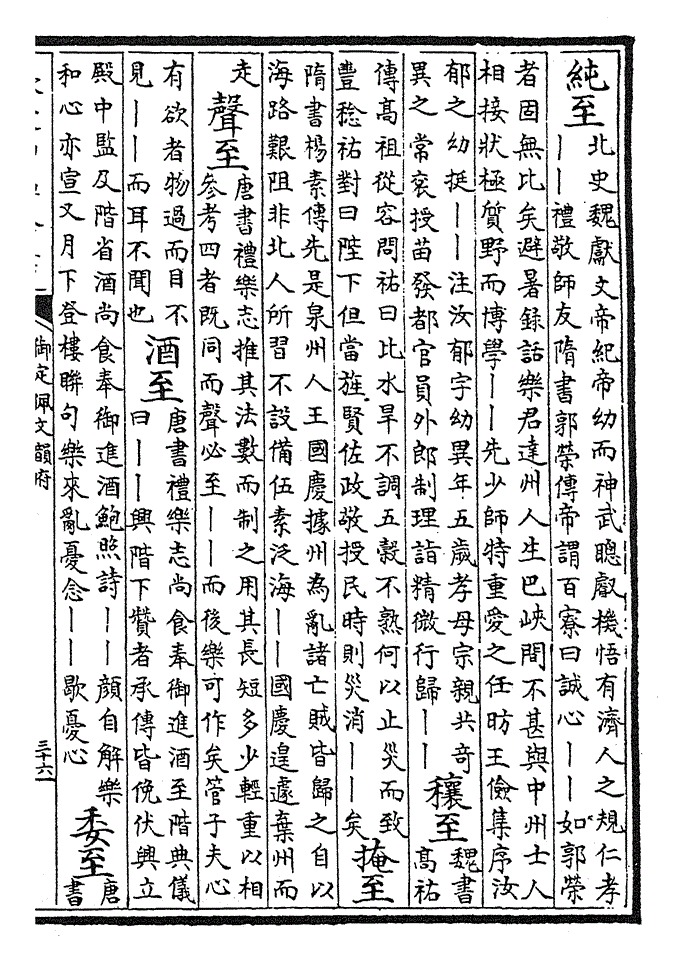 純至
北史魏獻文帝紀帝幼而神武聰叡機悟有濟人之規仁孝
丨丨禮敬師友隋書郭榮傳帝謂百寮曰誠心丨丨如郭榮
者固無比矣避暑錄話樂君達州人生巴峽間不甚與中州士人
相接狀極質野而博學丨丨先少師特重愛之任昉王儉集序汝
郁之幼挺丨丨注汝郁字幼異年五歲孝母宗親共奇
異之 常衮授苗發都官員外郎制理詣精微行歸丨丨
穰至
魏書
高祐
傳高祖從容問祐曰比水旱不調五穀不熟何以止災而致
豐稔祐對曰陛下但當旌賢佐政敬授民時則災消丨丨矣
掩至
隋書楊素傳先是泉州人王國慶據州為亂諸亡賊皆歸之自以
海路艱阻非北人所習不設備伍素泛海丨丨國慶遑遽棄州而
走
聲至
唐書禮樂志推其法數而制之用其長短多少輕重以相
參考四者既同而聲必至丨丨而後樂可作矣管子夫心
有欲者物過而目不
見丨丨而耳不聞也
酒至
唐書禮樂志尚食奉御進酒至階典儀
曰丨丨興階下贊者承傳皆俛伏興立
殿中監及階省酒尚食奉御進酒鮑照詩丨丨顔自解樂
和心亦宣又月下登樓聯句樂來亂憂念丨丨歇憂心
委至
唐
書
御定佩文韻府
三十六